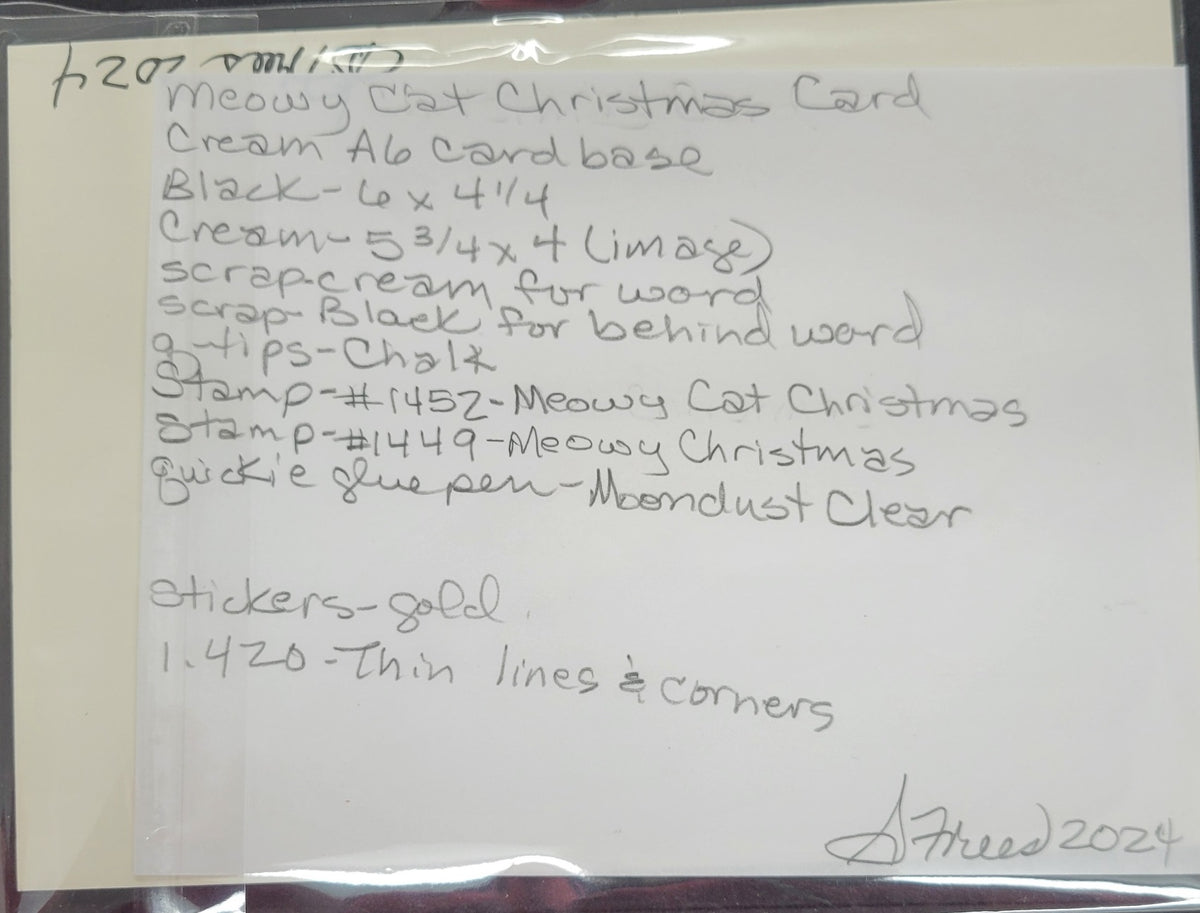 S Freed 2024
Meowy Cat Christmas Card
Cream A6 Card base
Black - 6 x 4 1/4
Cream - 5 3/4 x 4 (image)
scrap-cream for word
scrap-Black for behind word
q-tips-Chalk
Stamp-#1452-Meowy Cat Christmas
Stamp-#1449-Meowy Christmas
quickie glue pen-Moondust Clear
Stickers-gold
1.420-Thin lines & corners
S Freed 2024